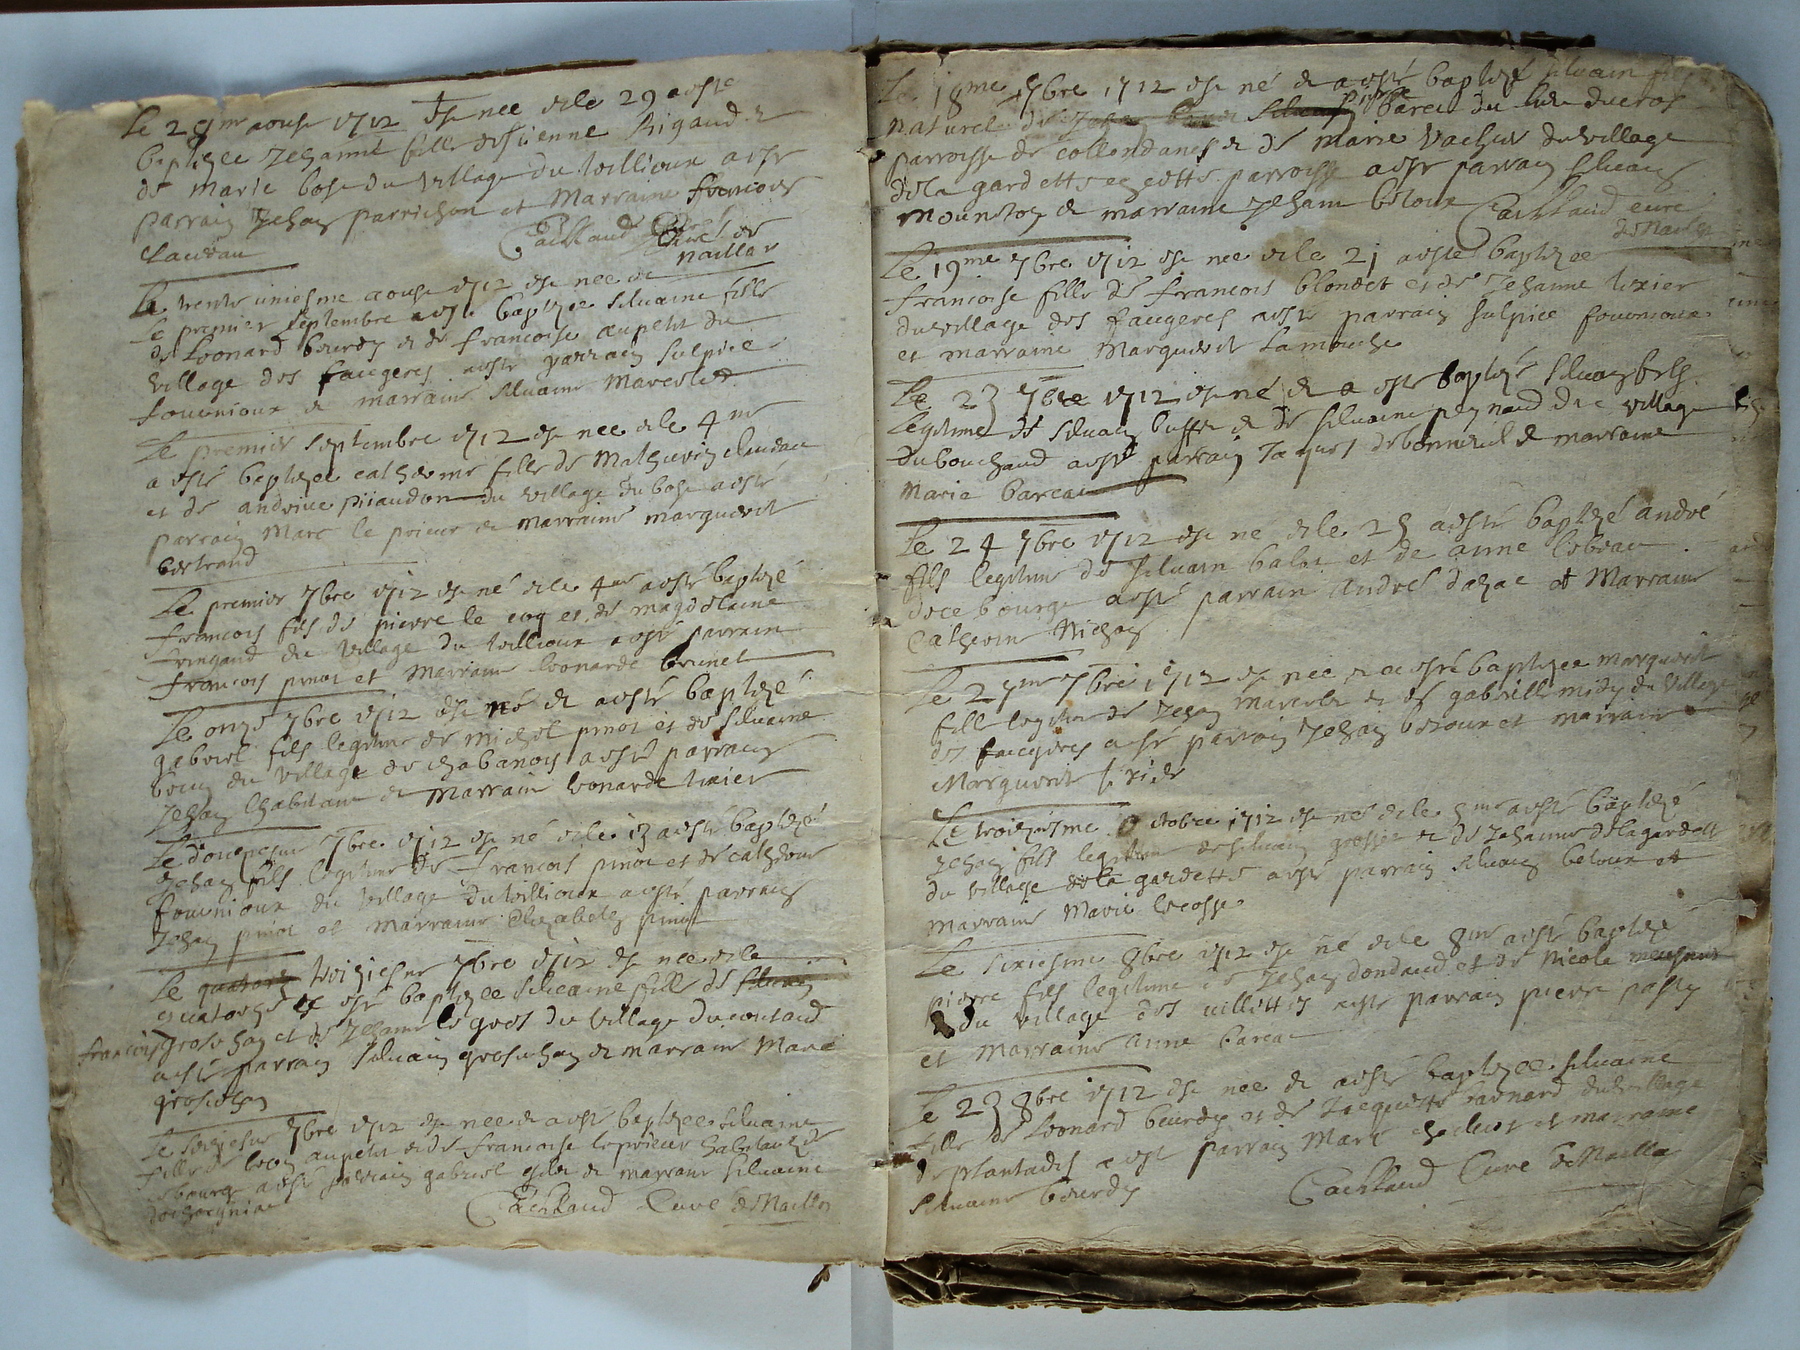 Le 28me aoust 1712 est nee et le 29 a esté
baptizee Jehanne fille destienne Rigaud et
de Marie bose du village du Villioux a esté
parrain Jehan parrichon et Marraine francoise
claudeau
Caillaud Curé de
naillac
Le trente uniesme aoust 1712 est nee et
le premier septembre a esté baptizee silvaine fille
de Leonard bourdy et de francoise aupetit du
village des faugeres a esté parrain sulpice
fournioux et marraine silvaine Marcelet
Le premier septembre 1712 est nee et le 4me
a esté baptizee catherine fille de Mathurin claudeau
et de andrive piiaudon du village du bost a esté
parrain Marc le prieur et Marraine marguerit
bertrand
Le premier 7bre 1712 est né et le 4me a esté baptizé
francois fils de pierre le coq et de magdelaine
fringaud du village du Villioux a esté parrain
francois pinot et Marraine leonarde brunet
Le onze 7bre 1712 est né et a esté baptizé
gabriel fils legitime de Michel pinot et de silvaine
du village de chabanois a esté parrain
Jehan Chabitaut et Marraine leonarde tixier
Le douziesme 7bre 1712 est né et le 13 a esté baptizé
Jehan fils legitime de francois pinot et de catherine
fournioux du village du Villioux a esté parrain
Jehan pinot et Marraine Elizabeth pinot
Le quatorze treiziesme 7bre 1712 est nee et le
quatorze a esté baptizee silvaine fille de silvain
francois grosichan et de Jehanne le gros du village du coutaud
a esté parrain silvain grosichan et marraine Marie
grosichan
Le seiziesme 7bre 1712 est nee et a esté baptizee silvaine
fille de leon aupetit et de francoise leprieur habitans de
ce bourg a esté parrain gabriel et marraine silvaine
Caillaud Curé de Naillac
Le 18me 7bre 1712 est né et a esté baptizé silvain fils
naturel de silvain pierre bareu du lieu ducros
parroisse de collondanes et de marie vachut du village
de la gardette en cette parroisse a esté parrain silvain
et marraine Jehanne beloux Caillaud curé
de Naillac
Le 19me 7bre 1712 est nee et le 21 a esté baptizee
francoise fille de francois blondet et de Jehanne tixier
du village des faugeres a esté parrain sulpice fournioux
et marraine Marguerit Lamouche
Le 23 7bre 1712 est né et a esté baptizé silvain fils
legitime de silvain et de silvaine peynaud du village
du bouchaud a esté parrain Jaques debonneuil et marraine
Maria bareau
Le 24 7bre 1712 est né et le 25 a esté baptizé andré
fils legitime de silvain balot et de anne lebeau
de ce bourge a esté parrain andré dazat et Marraine
Catherin Michon
Le 27me 7bre 1712 est nee et a esté baptizee marguerit
fille legitime de Jehan marcelet et de gabrielle midy du village
des faugeres a esté parrain Jehan beloux et marraine
Marguerit tixier
Le troiziesme octobre 1712 est né et le 5me a esté baptizé
Jehan fils legitime de silvain grosset et de Jehanne delagardette
du village de la gardette a esté parrain silvain beloux et
marraine Marie lecosse
Le sixiesme 8bre 1712 est né et le 8me a esté baptizé
pierre fils legitime de Jehan dondaud et de Nicole
du village des villettes a esté parrain pierre pasty
et Marraine anne bareau
Le 23 8bre 1712 est nee et a esté baptizee silvaine
fille de Leonard bourdy et de Jacquette bernard du village
de plantadis a esté parrain Marc et marraine
silvaine bourdy
Caillaud Curé de Naillac